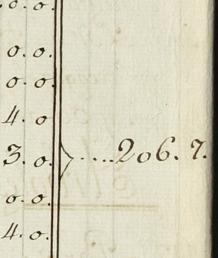 0. 0.
0. 0.
0. 0.
4. 0
3. 0. } ....206. 7.
0. 0.
4. 0.